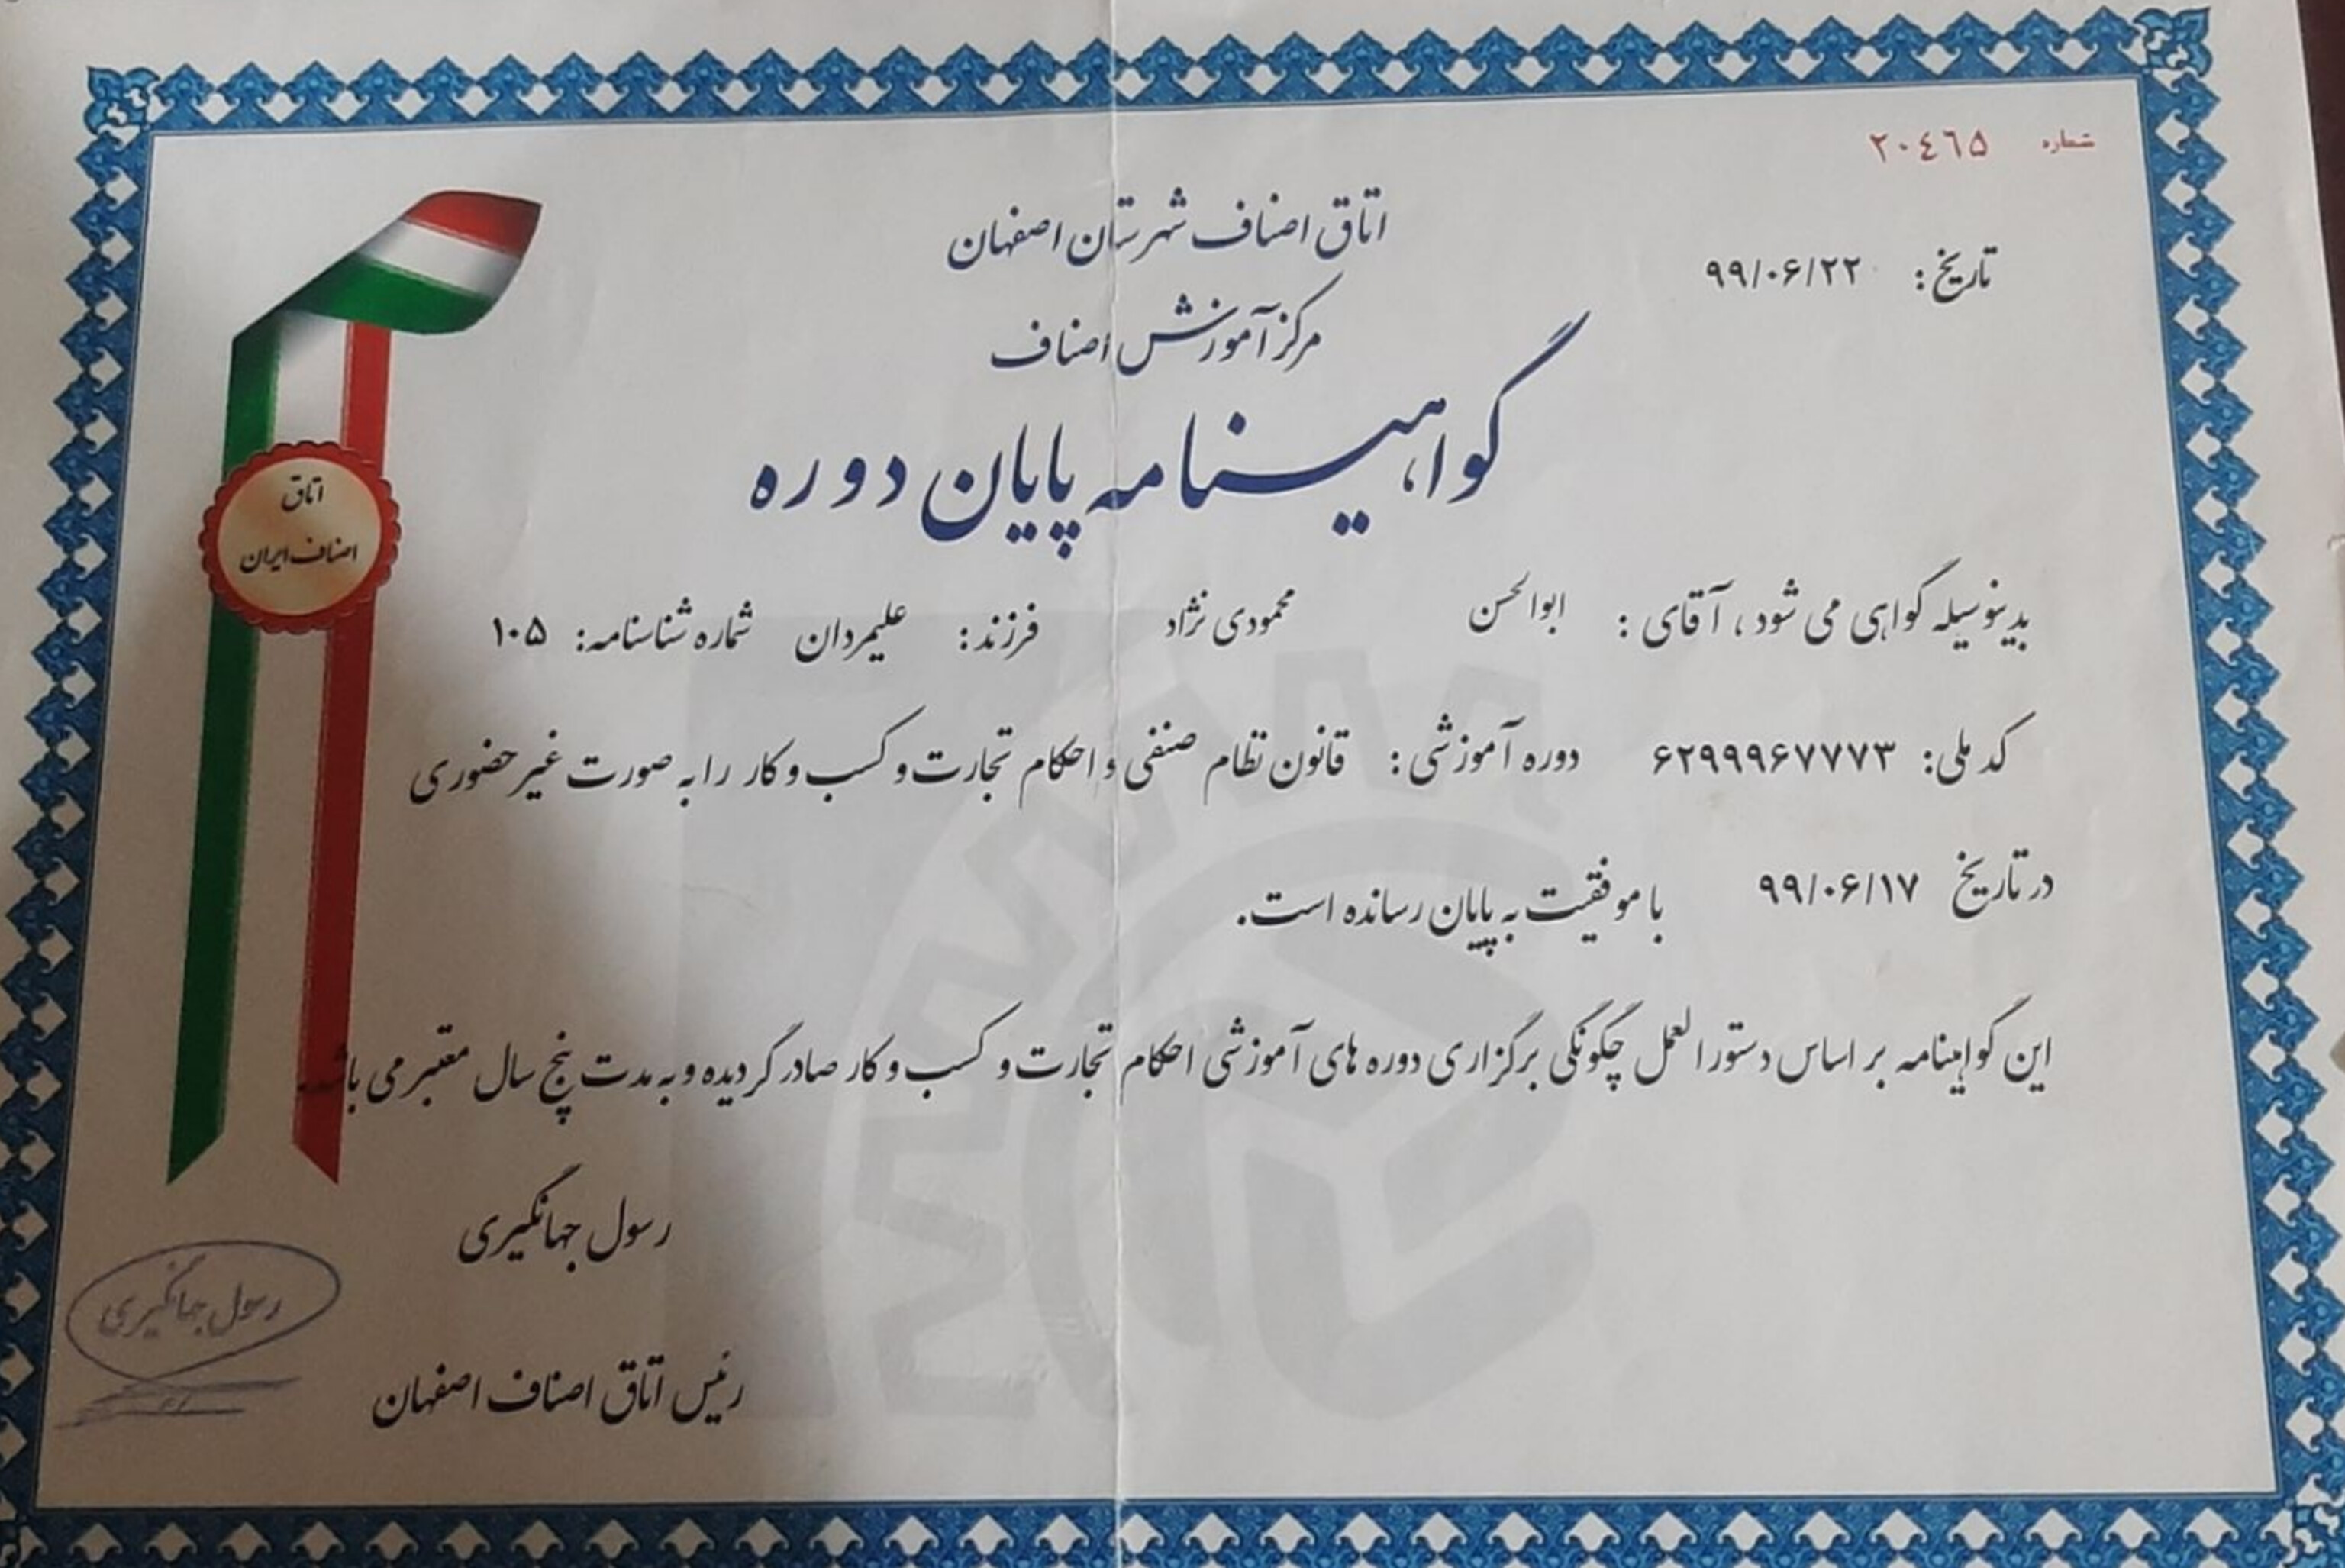 شماره ۲۰٤٦۵
اتاق اصناف شهرستان اصفهان
تاریخ: ۹۹/۰۶/۲۲
مرکز آموزش اصناف
گواهینامه پایان دوره
اتاق
اصناف ایران
بدینوسیله گواهی می شود، آقای : ابوالحسن محمودی نژاد فرزند: علیمردان شماره شناسنامه: ۱۰۵
کد ملی: ۶۲۹۹۹۶۷۷۷۳ دوره آموزشی : قانون نظام صنفی و احکام تجارت و کسب و کار را به صورت غیر حضوری
در تاریخ ۹۹/۰۶/۱۷ با موفقیت به پایان رسانده است.
این گواهینامه بر اساس دستورالعمل چگونگی برگزاری دوره های آموزشی احکام تجارت و کسب و کار صادر گردیده و به مدت پنج سال معتبر می باشد.
رسول جهانگیری
رسول جهانگیری
رئیس اتاق اصناف اصفهان